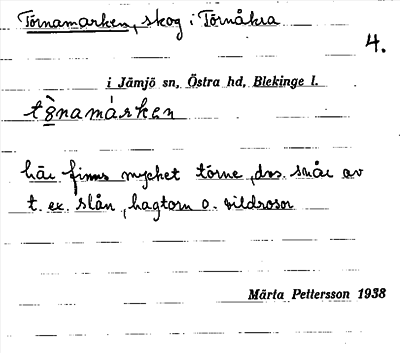 Törnamarken, skog i Törnåkra
4.
i Jämjö sn, Östra hd, Blekinge l.
här finns mycket törne, dvs. snår av
t. ex. slån, hagtorn o. vildrosor
Märta Pettersson 1938